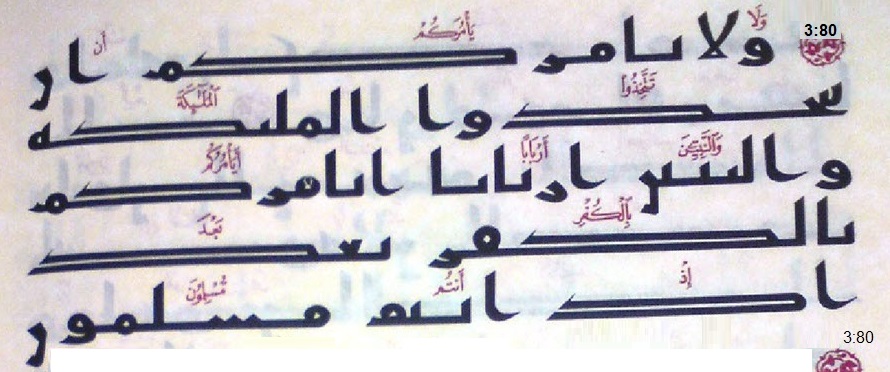 3:80
وَلَا يَأْمُرَكُمْ أَن
ولا يامركم ان
تَتَّخِذُوا۟ ٱلْمَلَٰٓئِكَةَ
تتخذوا الملئكه
وَٱلنَّبِيِّـۧنَ أَرْبَابًا أَيَأْمُرُكُم
والنبين اربابا ايامركم
بِٱلْكُفْرِ بَعْدَ
بالكفر بعد
إِذْ أَنتُم مُّسْلِمُونَ
اذ انتم مسلمون
3:80